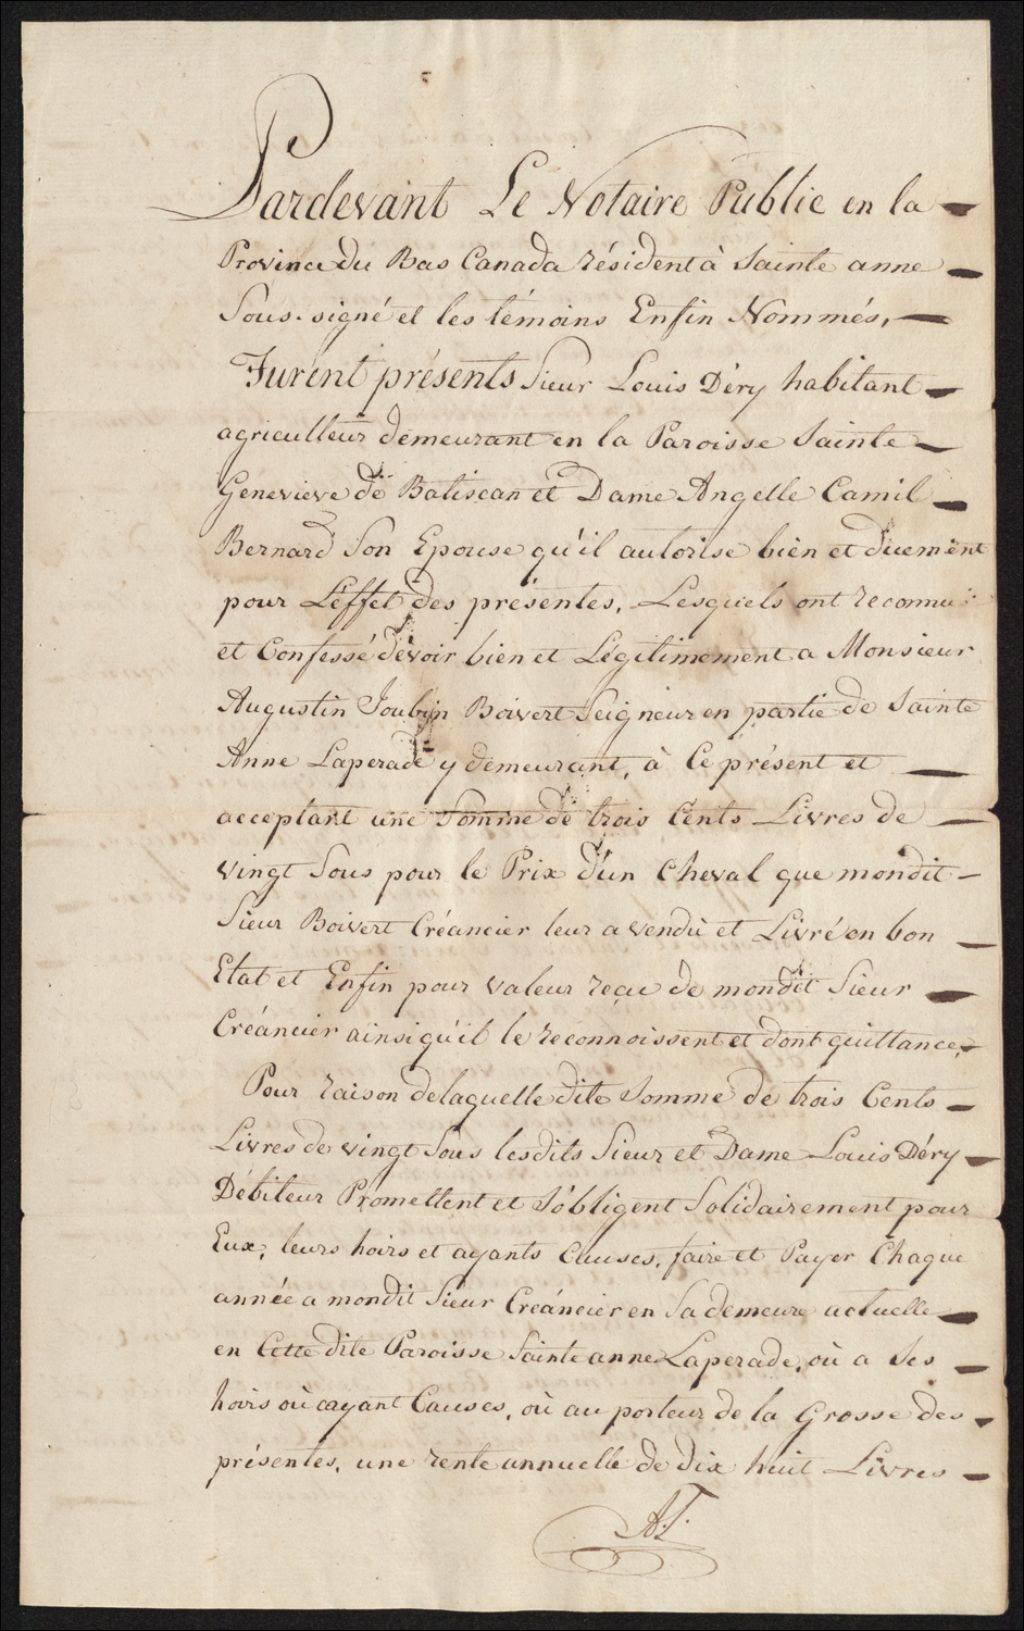 Pardevant Le Notaire Public en la
Province du Bas Canada résident à Sainte anne
Sous-signé et les témoins Enfin Nommés,
Furent présents Sieur Louis Déry habitant
agriculteur demeurant en la Paroisse Sainte
Genevieve de Batiscan et Dame Angelle Camil
Bernard Son Epouse qu'il autorise bien et duement
pour L'éffet des présentes, Lesquels ont reconnu
et Confessé dévoir bien et Légitimement a Monsieur
Augustin Joubin Boivert Seigneur en partie de Sainte
Anne Laperade y demeurant, à Ce présent et
acceptant une Somme de trois Cents Livres de
vingt Sous pour le Prix d'un Cheval que mondit
Sieur Boivert Créancier leur a vendu et Livré en bon
Etat et Enfin pour valeur reçue de mondit Sieur
Créancier ainsi qu'il le reconnoissent et dont quittance,
Pour raison de laquelle dite Somme de trois Cents
Livres de vingt Sous lesdits Sieur et Dame Louis Déry
Débiteur Promettent et S'obligent Solidairement pour
Eux, leurs hoirs et ayants Causes, faire et Payer Chaque
année a mondit Sieur Créancier en Sa demeure actuelle
en Cette dite Paroisse Sainte anne Laperade, où a Ses
hoirs où ayant Causes, où au porteur de la Grosse des
présentes, une rente annuelle de dix huit Livres
A.T.